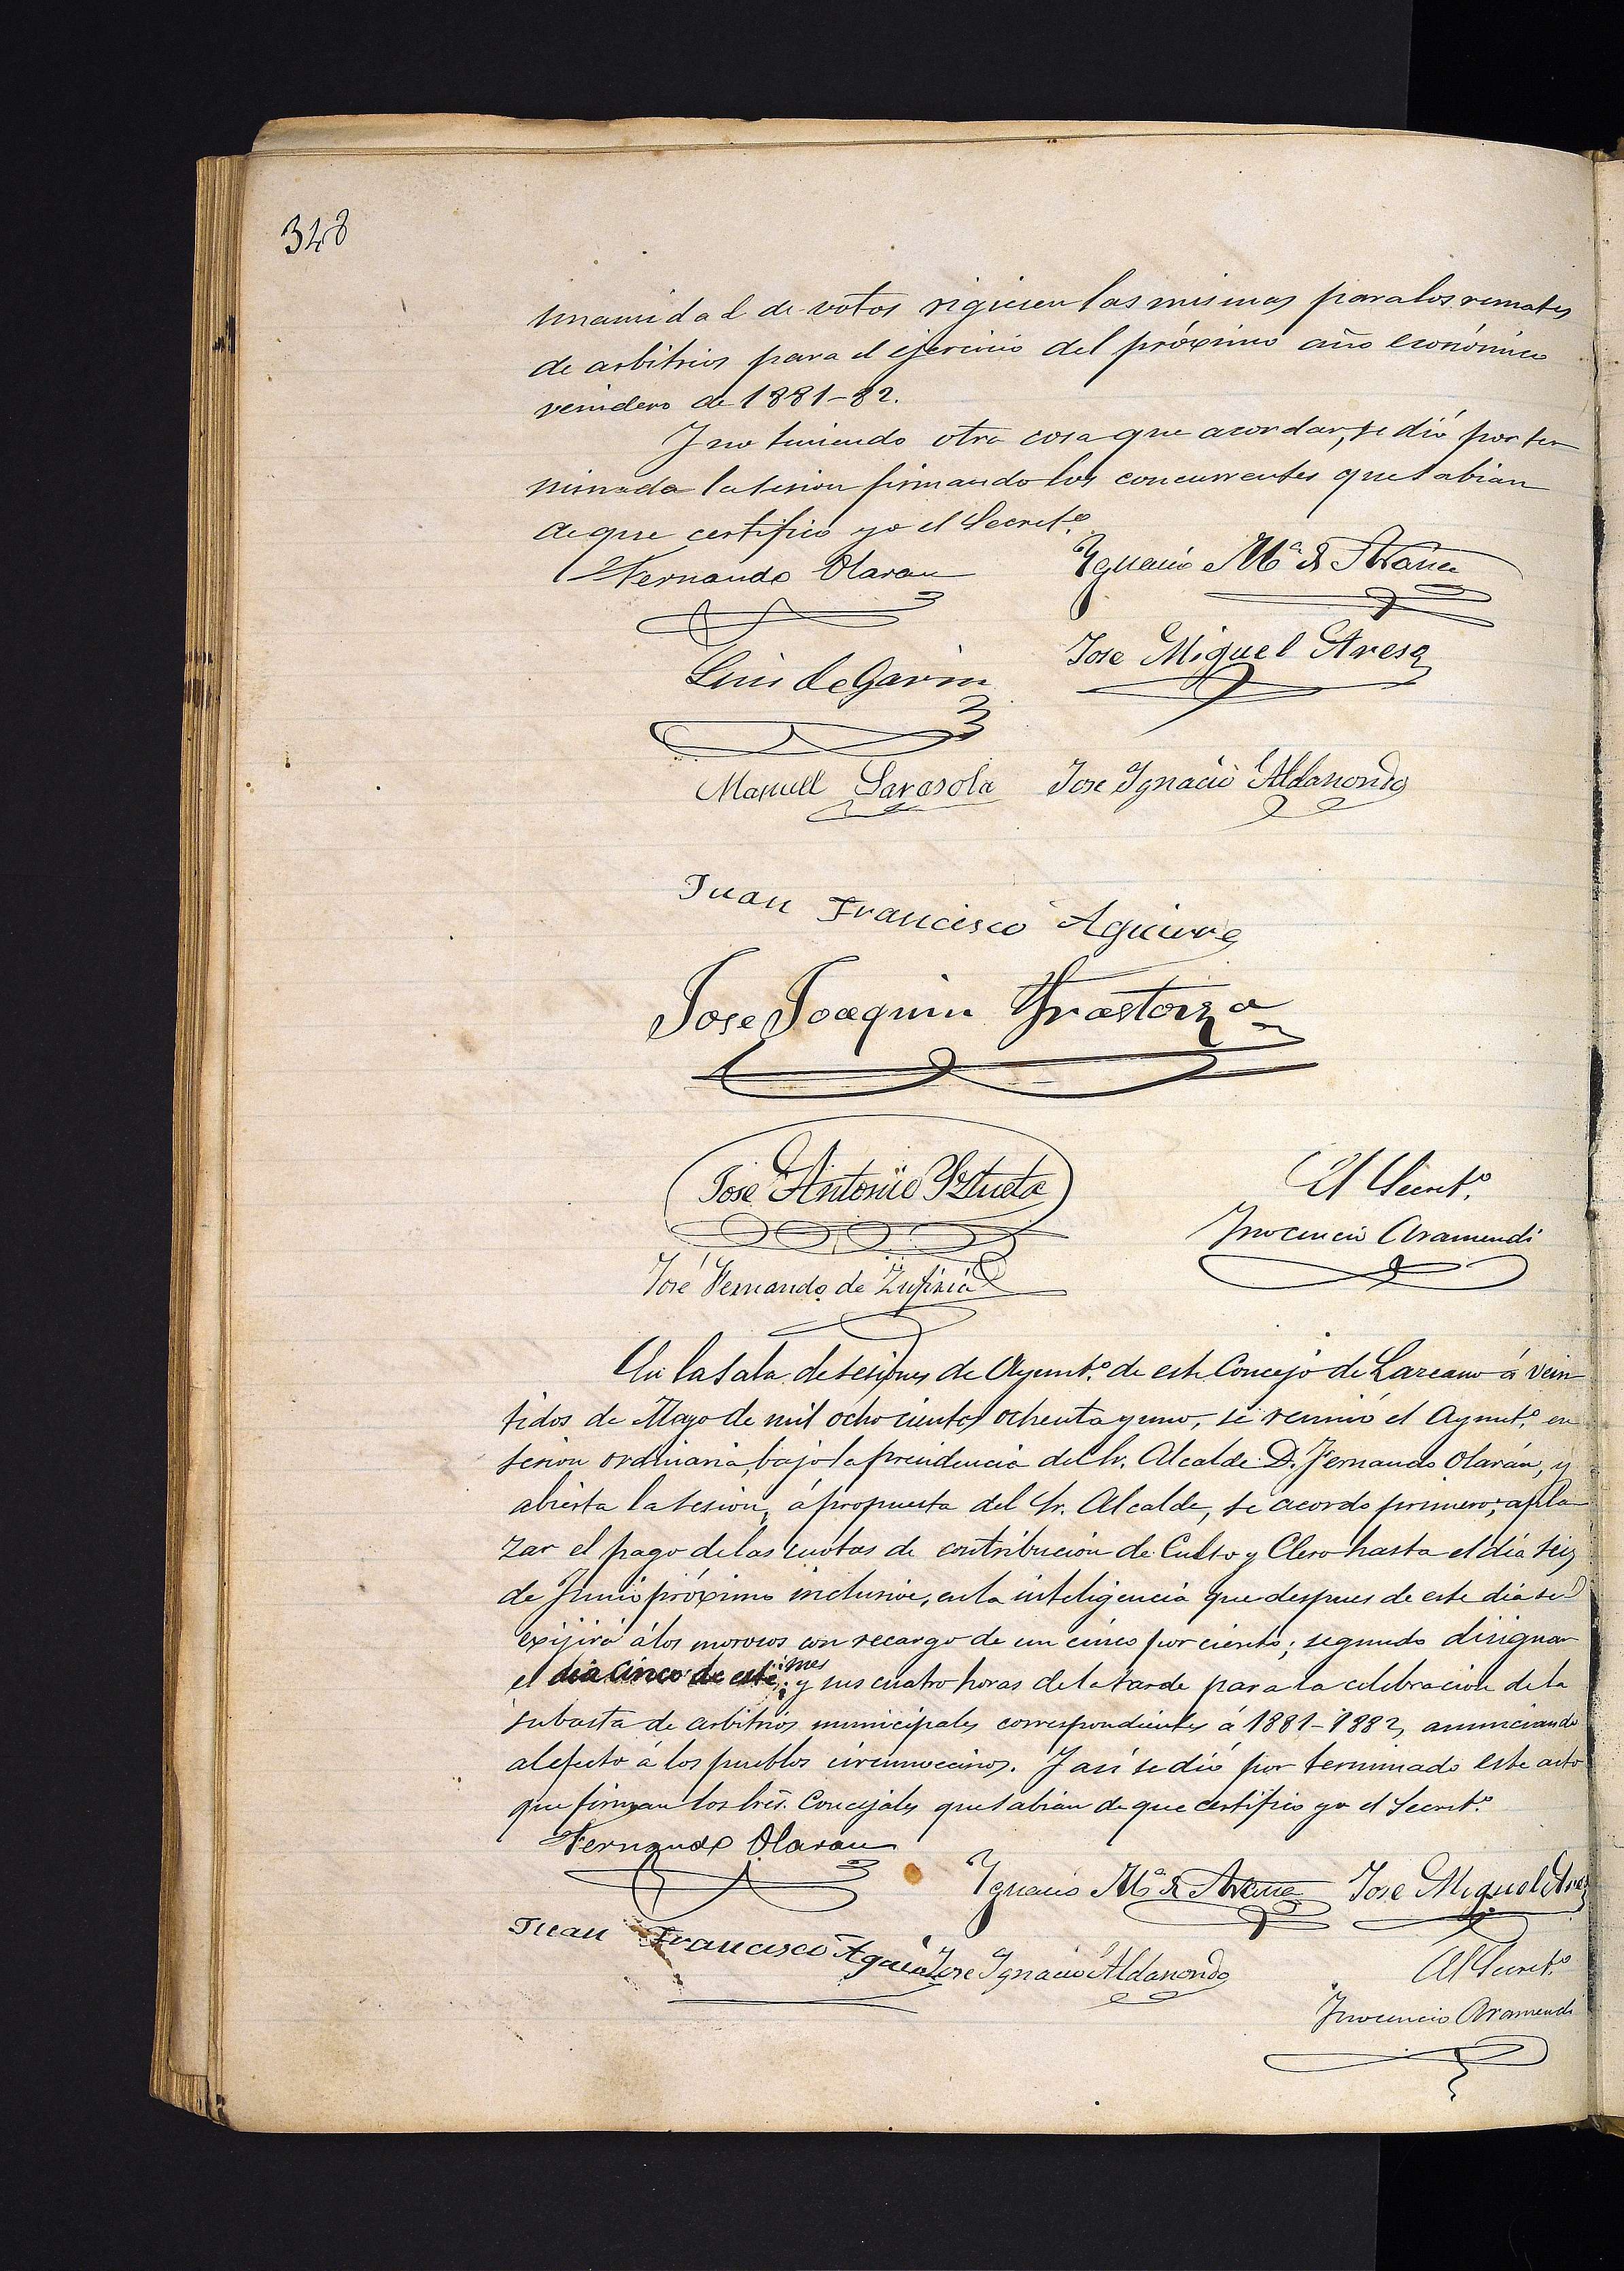 348
unanimidad de votos rigiesen las mismas para los remates
de arbitrios para el ejercicio del próximo año económico
venidero de 1881-82.
Y no teniendo otra cosa que acordar, se dió por ter
minada la sesion firmando los concurrentes que sabian
de que certifico yo el Secret.º
Fernando Olaran Ygnacio M.ª de Arana
Luis de Garin Jose Miguel Aresa
Manuel Sarasola Jose Ygnacio Aldanondo
Juan Francisco Aguirre
Jose Joaquin Yrastorza
Jose Antonio Yztueta El Secret.º
Ynocencio Aramendi
José Fernando de Zufiria
En la sala de sesiones de Ayunt.º de este Concejo de Lazcano á vein
tidos de Mayo de mil ochocientos ochenta y uno, se reunió el Ayunt.º en
sesion ordinaria, bajo la presidencia del Sr. Alcalde D. Fernando Olarán, y
abierta la sesion, á propuesta del Sr. Alcalde, se acordo primero; apla
zar el pago de las cuotas de contribución de Culto y Clero hasta el dia seis
de Junio próximo inclusive, en la inteligencia que despues de este dia se
exijirá á los morosos con recargo de un cinco por ciento; segundo disignar
el dia cinco de este mes y sus cuatro horas de la tarde para la celebracion de la
subasta de arbitrios municipales correspondientes á 1881-1882, anunciando
al efecto á los pueblos circunvecinos. Y así se dió por terminado este acto
que firman los Sres. Concejales que sabian de que certifico yo el Secret.º
Fernando Olaran
Ygnacio M.ª de Arana Jose Miguel
Juan Francisco Jose Ygnacio Aldanondo El Secret.º
Ynocencio Aramendi